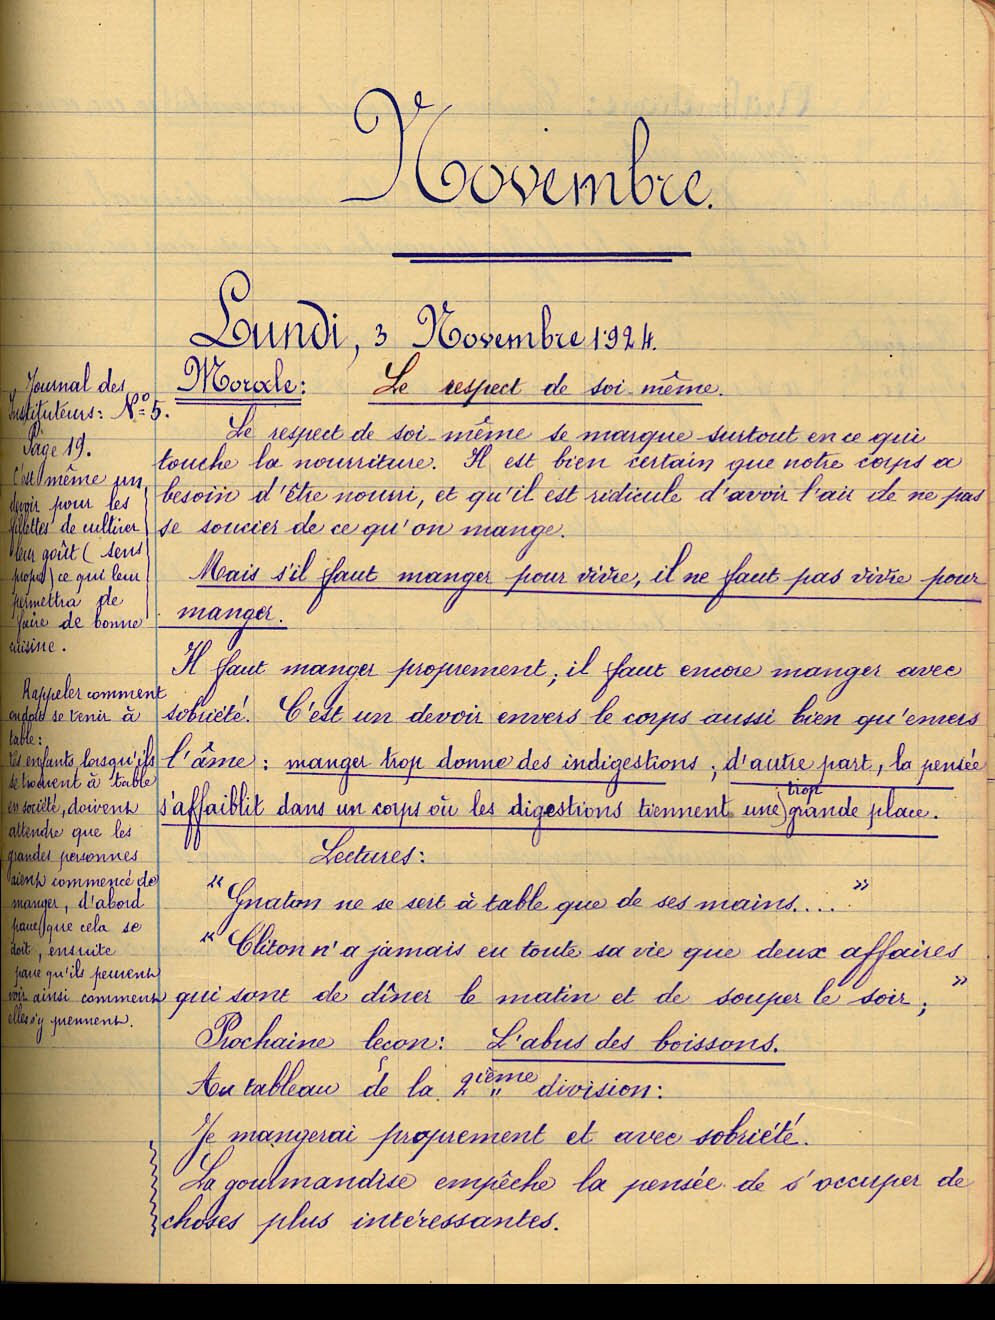 Novembre.
Lundi, 3 Novembre 1924.
Journal des
Instituteurs: N° 5.
Page 19.
C'est même un
devoir pour les
fillettes de cultiver
leur goût (sens
propre) ce qui leur
permettra de
faire de bonne
cuisine.
Rappeler comment
on doit se tenir à
table:
les enfants lorsqu'ils
se trouvent à table
en société, doivent
attendre que les
grandes personnes
aient commencé de
manger, d'abord
parce que cela se
doit, ensuite
parce qu'ils peuvent
voir ainsi comment
elles s'y prennent.
Morale: Le respect de soi-même.
Le respect de soi-même se marque surtout en ce qui
touche la nourriture. Il est bien certain que notre corps a
besoin d'être nourri, et qu'il est ridicule d'avoir l'air de ne pas
se soucier de ce qu'on mange.
Mais s'il faut manger pour vivre, il ne faut pas vivre pour
manger.
Il faut manger proprement; il faut encore manger avec
sobriété. C'est un devoir envers le corps aussi bien qu'envers
l'âme: manger trop donne des indigestions; d'autre part, la pensée
s'affaiblit dans un corps où les digestions tiennent une trop grande place.
Lectures:
"Gnaton ne se sert à table que de ses mains...."
"Cliton n'a jamais eu toute sa vie que deux affaires
qui sont de dîner le matin et de souper le soir;"
Prochaine leçon: L'abus des boissons.
Au tableau de la 2ième division:
Je mangerai proprement et avec sobriété.
La gourmandise empêche la pensée de s'occuper de
choses plus intéressantes.